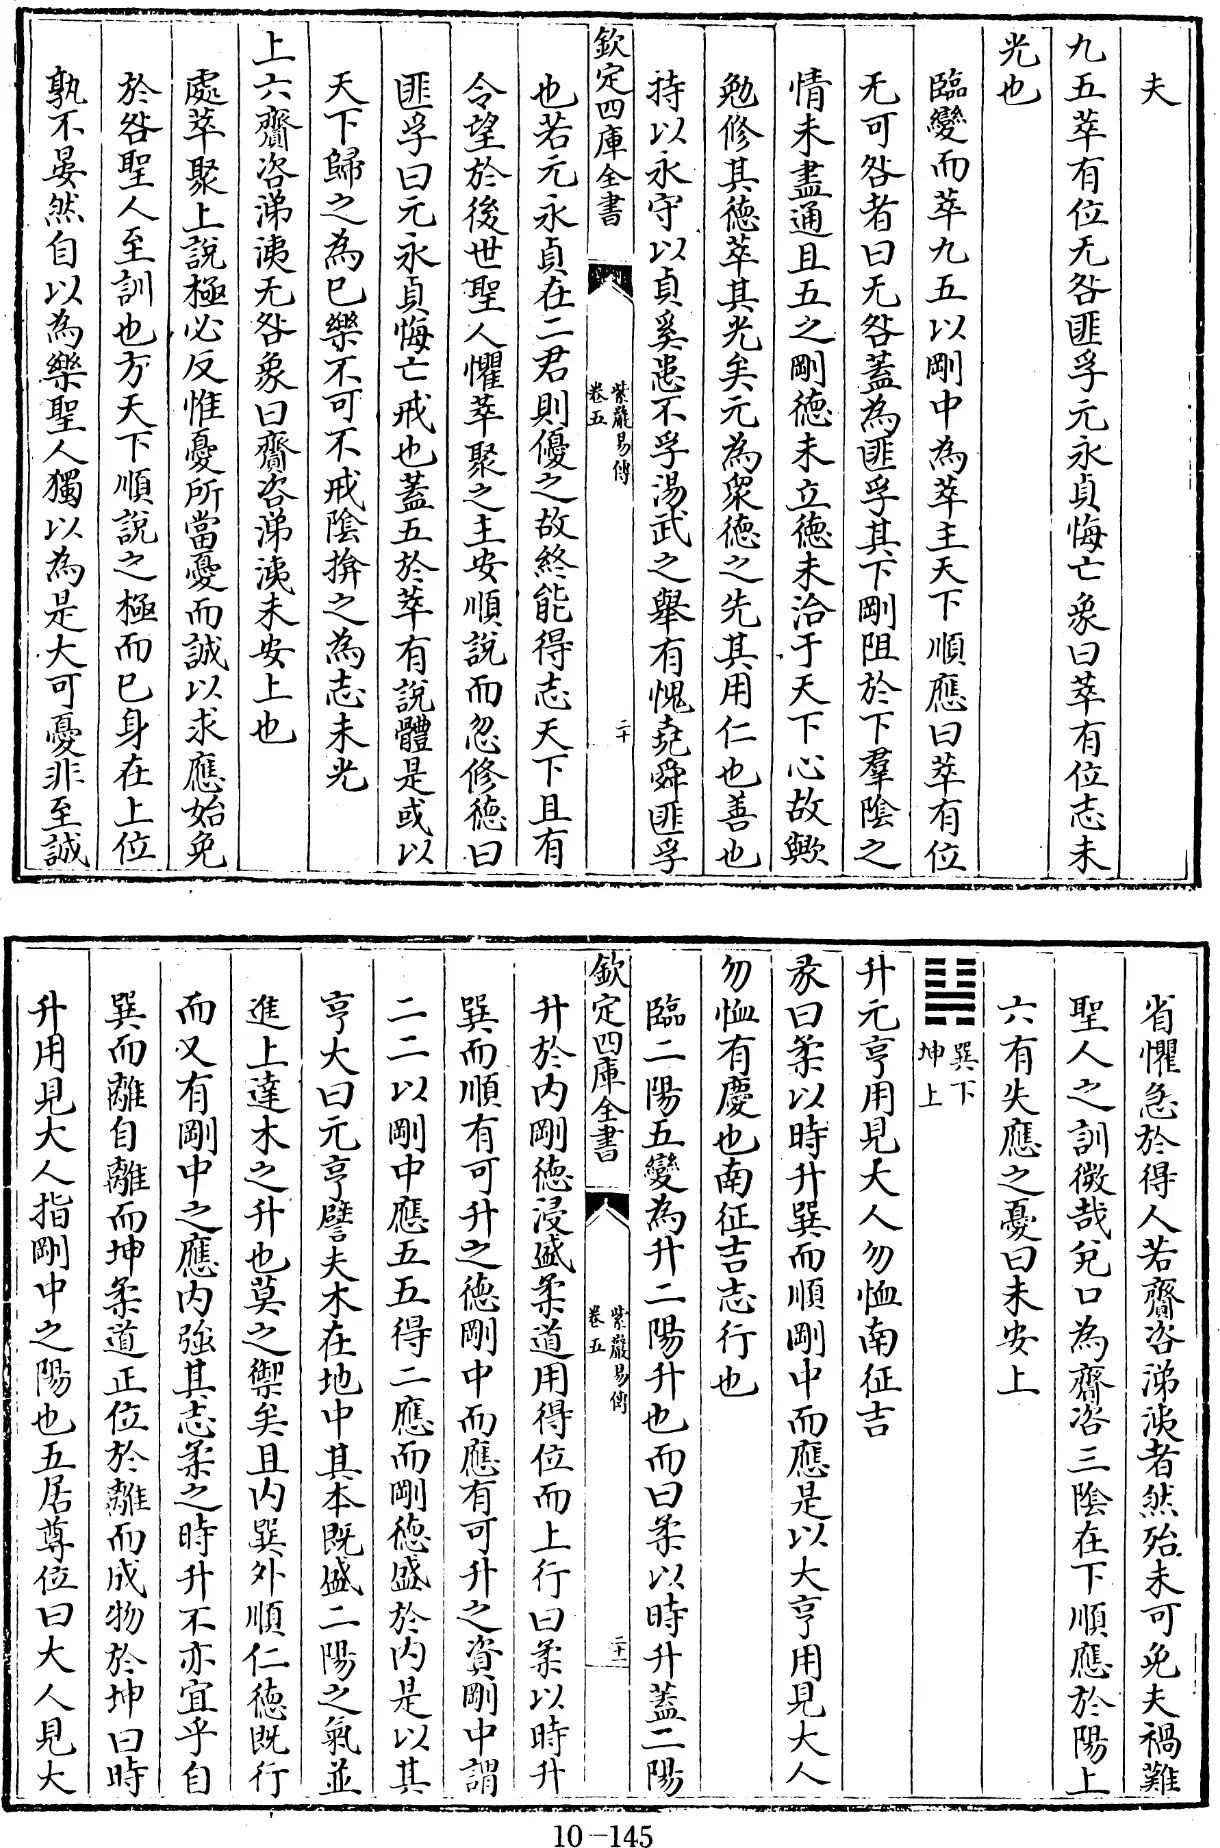 夫
九五萃有位无咎匪孚元永貞悔亡象曰萃有位志未
光也
臨變而萃九五以剛中為萃主天下順應曰萃有位
无可咎者曰无咎蓋為匪孚其下剛阻於下羣陰之
情未盡通且五之剛德未立德未洽于天下心故歟
勉修其德萃其光矣元為衆德之先其用仁也善也
持以永守以貞奚患不孚湯武之舉有愧堯舜匪孚
欽定四庫全書
紫巖易傳
卷五
二十
也若元永貞在二君則優之故終能得志天下且有
令望於後世聖人懼萃聚之主安順說而忽修德曰
匪孚曰元永貞悔亡戒也蓋五於萃有說體是或以
天下歸之為已樂不可不戒陰揜之為志未光
上六齎咨涕洟无咎象曰齎咨涕洟未安上也
處萃聚上說極必反惟憂所當憂而誠以求應始免
於咎聖人至訓也方天下順說之極而已身在上位
孰不晏然自以為樂聖人獨以為是大可憂非至誠
省懼急於得人若齎咨涕洟者然殆未可免夫禍難
聖人之訓微哉兌口為齎咨三陰在下順應於陽上
六有失應之憂曰未安上
巽下
坤上
升元亨用見大人勿恤南征吉
彖曰柔以時升巽而順剛中而應是以大亨用見大人
勿恤有慶也南征吉志行也
臨二陽五變為升二陽升也而曰柔以時升蓋二陽
欽定四庫全書
紫巖易傳
卷五
二十一
升於内剛德浸盛柔道用得位而上行曰柔以時升
巽而順有可升之德剛中而應有可升之資剛中謂
二二以剛中應五五得二應而剛德盛於内是以其
亨大曰元亨譬夫木在地中其本既盛二陽之氣並
進上達木之升也莫之禦矣且内巽外順仁德既行
而又有剛中之應内強其志柔之時升不亦宜乎自
巽而離自離而坤柔道正位於離而成物於坤曰時
升用見大人指剛中之陽也五居尊位曰大人見大
10-145